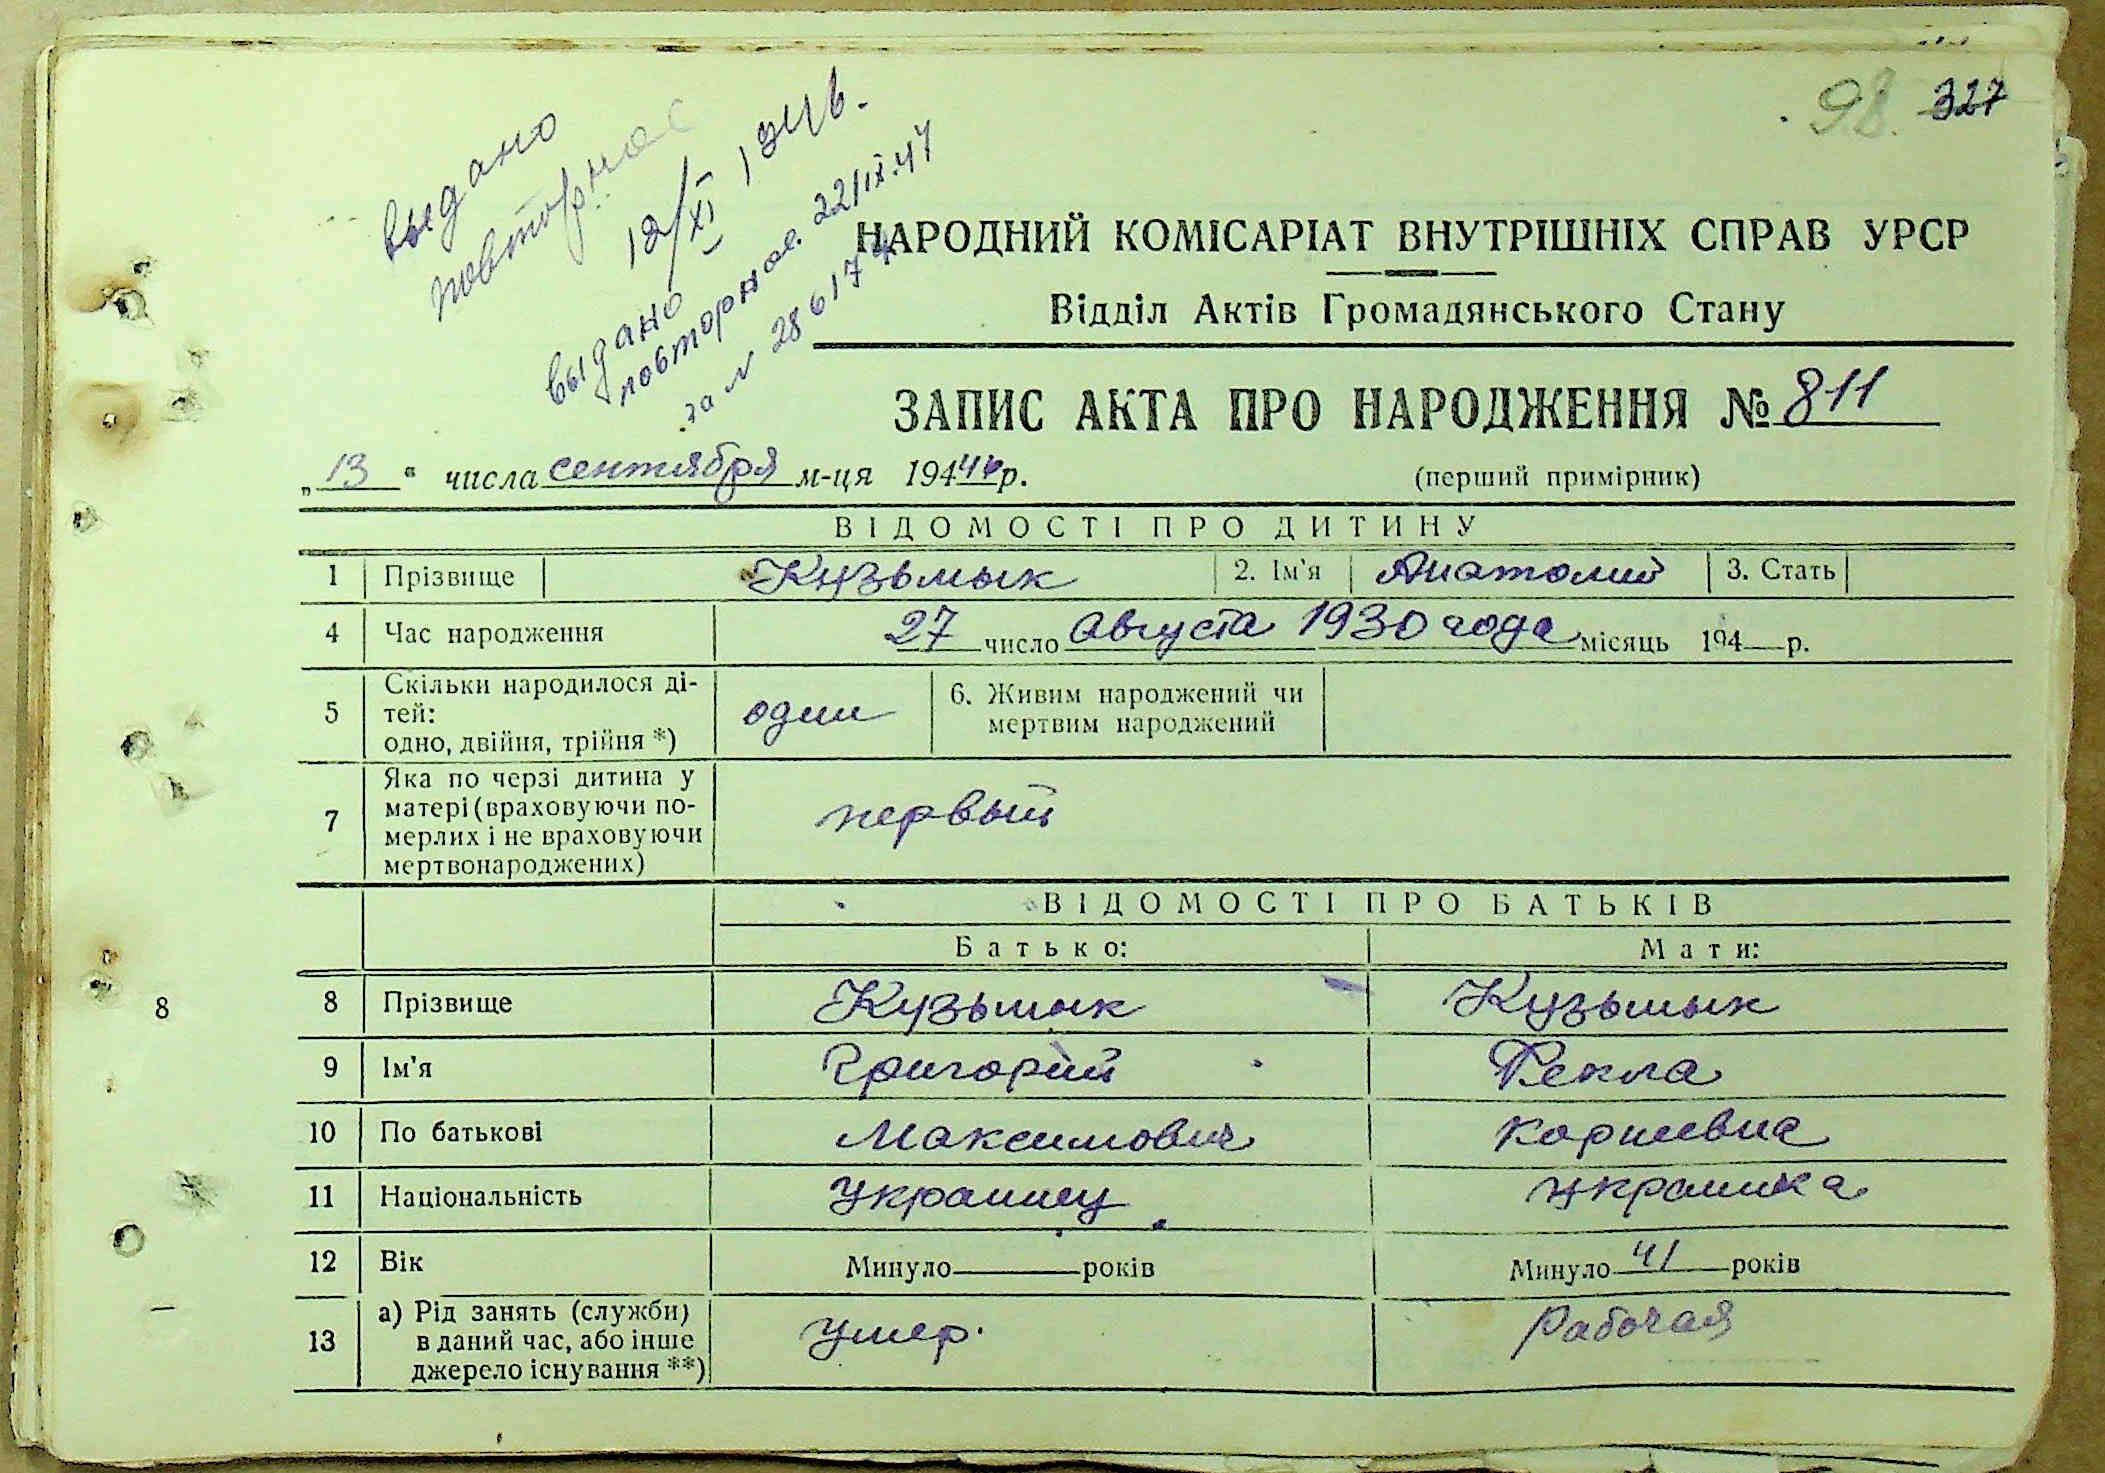 98 327
выдано
повторное
12/XI 1946.
выдано
повторное. 22/IX.47
за №
НАРОДНИЙ КОМІСАРІАТ ВНУТРІШНІХ СПРАВ УРСР
Відділ Актів Громадянського Стану
ЗАПИС АКТА ПРО НАРОДЖЕННЯ № 811
„13“ числа сентября м-ця 194 р.
(перший примірник)
ВІДОМОСТІ ПРО ДИТИНУ
1 Прізвище Кузьмык 2. Ім'я Анатолий 3. Стать
4 Час народження 27 число Августа 1930 года місяць 194—р.
5 Скільки народилося ді-
тей:
одно, двійня, трійня *) один
6. Живим народжений чи
мертвим народжений
7 Яка по черзі дитина у
матері (враховуючи по-
мерлих і не враховуючи
мертвонароджених) первый
ВІДОМОСТІ ПРО БАТЬКІВ
Батько: Мати:
8 8 Прізвище Кузьмык Кузьмык
9 Ім'я Григорий Фекла
10 По батькові Максимович Корневна
11 Національність Украинец Украинка
12 Вік Минуло——років Минуло 41 років
13 а) Рід занять (служби)
в даний час, або інше
джерело існування **) умер. Рабочая